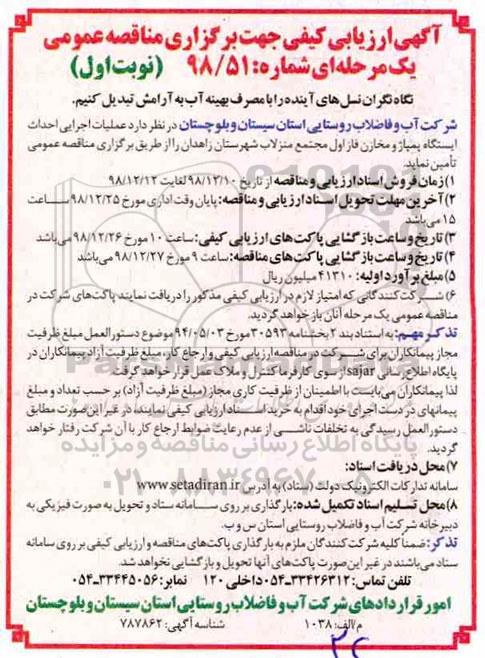 آگهی ارزیابی کیفی جهت برگزاری مناقصه عمومی
یک مرحله‌ای شماره: ۹۸/۵۱ (نوبت اول)
نگاه نگران نسل‌های آینده را با مصرف بهینه آب به آرامش تبدیل کنیم.
شرکت آب و فاضلاب روستایی استان سیستان و بلوچستان در نظر دارد عملیات اجرایی احداث
ایستگاه پمپاژ و مخازن فاز اول مجتمع منزلاب شهرستان زاهدان را از طریق برگزاری مناقصه عمومی
تأمین نماید.
۱) زمان فروش اسناد ارزیابی و مناقصه از تاریخ ۹۸/۱۲/۱۰ لغایت ۹۸/۱۲/۱۲
۲) آخرین مهلت تحویل اسناد ارزیابی و مناقصه: پایان وقت اداری مورخ ۹۸/۱۲/۲۵ ساعت
۱۵ می‌باشد
۳) تاریخ و ساعت بازگشایی پاکت‌های ارزیابی کیفی: ساعت ۱۰ مورخ ۹۸/۱۲/۲۶ می‌باشد
۴) تاریخ و ساعت بازگشایی پاکت‌های مناقصه: ساعت ۹ مورخ ۹۸/۱۲/۲۷ می‌باشد
۵) مبلغ برآورد اولیه: ۴۱۳۱۰ میلیون ریال
۶) شرکت‌کنندگانی که امتیاز لازم در ارزیابی کیفی مذکور را دریافت نمایند پاکت‌های شرکت در
مناقصه عمومی یک مرحله آنان باز خواهد گردید.
تذکر مهم: به استناد بند ۲ بخشنامه ۳۰۵۹۳ مورخ ۹۴/۰۵/۰۳ موضوع دستورالعمل مبلغ ظرفیت
مجاز پیمانکاران برای شرکت در مناقصه ارزیابی کیفی و ارجاع کار، مبلغ ظرفیت آزاد پیمانکاران در
پایگاه اطلاع رسانی sajar از سوی کارفرما کنترل و ملاک عمل قرار خواهد گرفت.
لذا پیمانکاران می‌بایست با اطمینان از ظرفیت کاری مجاز (مبلغ ظرفیت آزاد) بر حسب تعداد و مبلغ
پیمانهای در دست اجرای خود اقدام به خرید اسناد ارزیابی کیفی نمایند، در غیر این صورت مطابق
دستورالعمل رسیدگی به تخلفات ناشی از عدم رعایت ضوابط ارجاع کار با آن شرکت رفتار خواهد
گردید.
۷) محل دریافت اسناد:
سامانه تدارکات الکترونیک دولت (ستاد) به آدرس www.setadiran.ir
۸) محل تسلیم اسناد تکمیل شده: بارگذاری بر روی سامانه ستاد و تحویل به صورت فیزیکی به
دبیرخانه شرکت آب و فاضلاب روستایی استان س و ب.
تذکر: ضمناً کلیه شرکت کنندگان ملزم به بارگذاری پاکت‌های مناقصه و ارزیابی کیفی بر روی سامانه
ستاد می‌باشند در غیر این صورت پاکت‌های آنها تحویل و بازگشایی نخواهد شد.
تلفن تماس: ۳۳۴۲۶۳۱۲-۰۵۴ داخلی ۱۲۰ نمابر: ۳۳۴۴۵۰۵۶-۰۵۴
امور قراردادهای شرکت آب و فاضلاب روستایی استان سیستان و بلوچستان
م/الف: ۱۰۳۸ شناسه آگهی: ۷۸۷۸۶۲
پایگاه اطلاع رسانی مناقصه و مزایده
۰۲۱-۸۸۳۴۹۶۷۰-۵